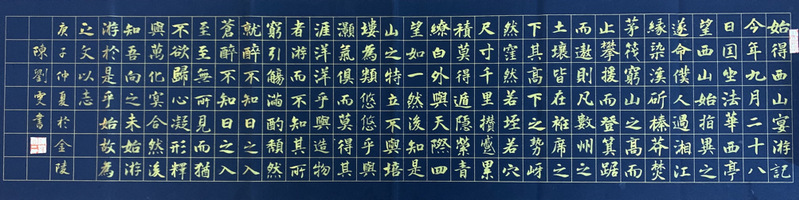 始得西山宴游記
今年九月二十八
日因坐法華西亭
望西山始指異之
遂命僕人過湘江
緣染溪斫榛莽焚
茅茷窮山之高而
止攀援而登箕踞
而遨則凡數州之
土壤皆在衽席之
下其高下之勢岈
然窪然若垤若穴
尺寸千里攢蹙累
積莫得遁隱縈青
繚白外與天際四
望如一然後知是
山之特立不與培
塿為類悠悠乎與
顥氣俱而莫得其
涯洋洋乎與造物
者游而不知其所
窮引觴滿酌頹然
就醉不知日之入
蒼
至無所見而猶
不欲歸心凝形釋
與萬化冥合然後
知吾向之未始游
游於是乎始故為
之文以志
庚子仲夏於金陵
陳劉雯書